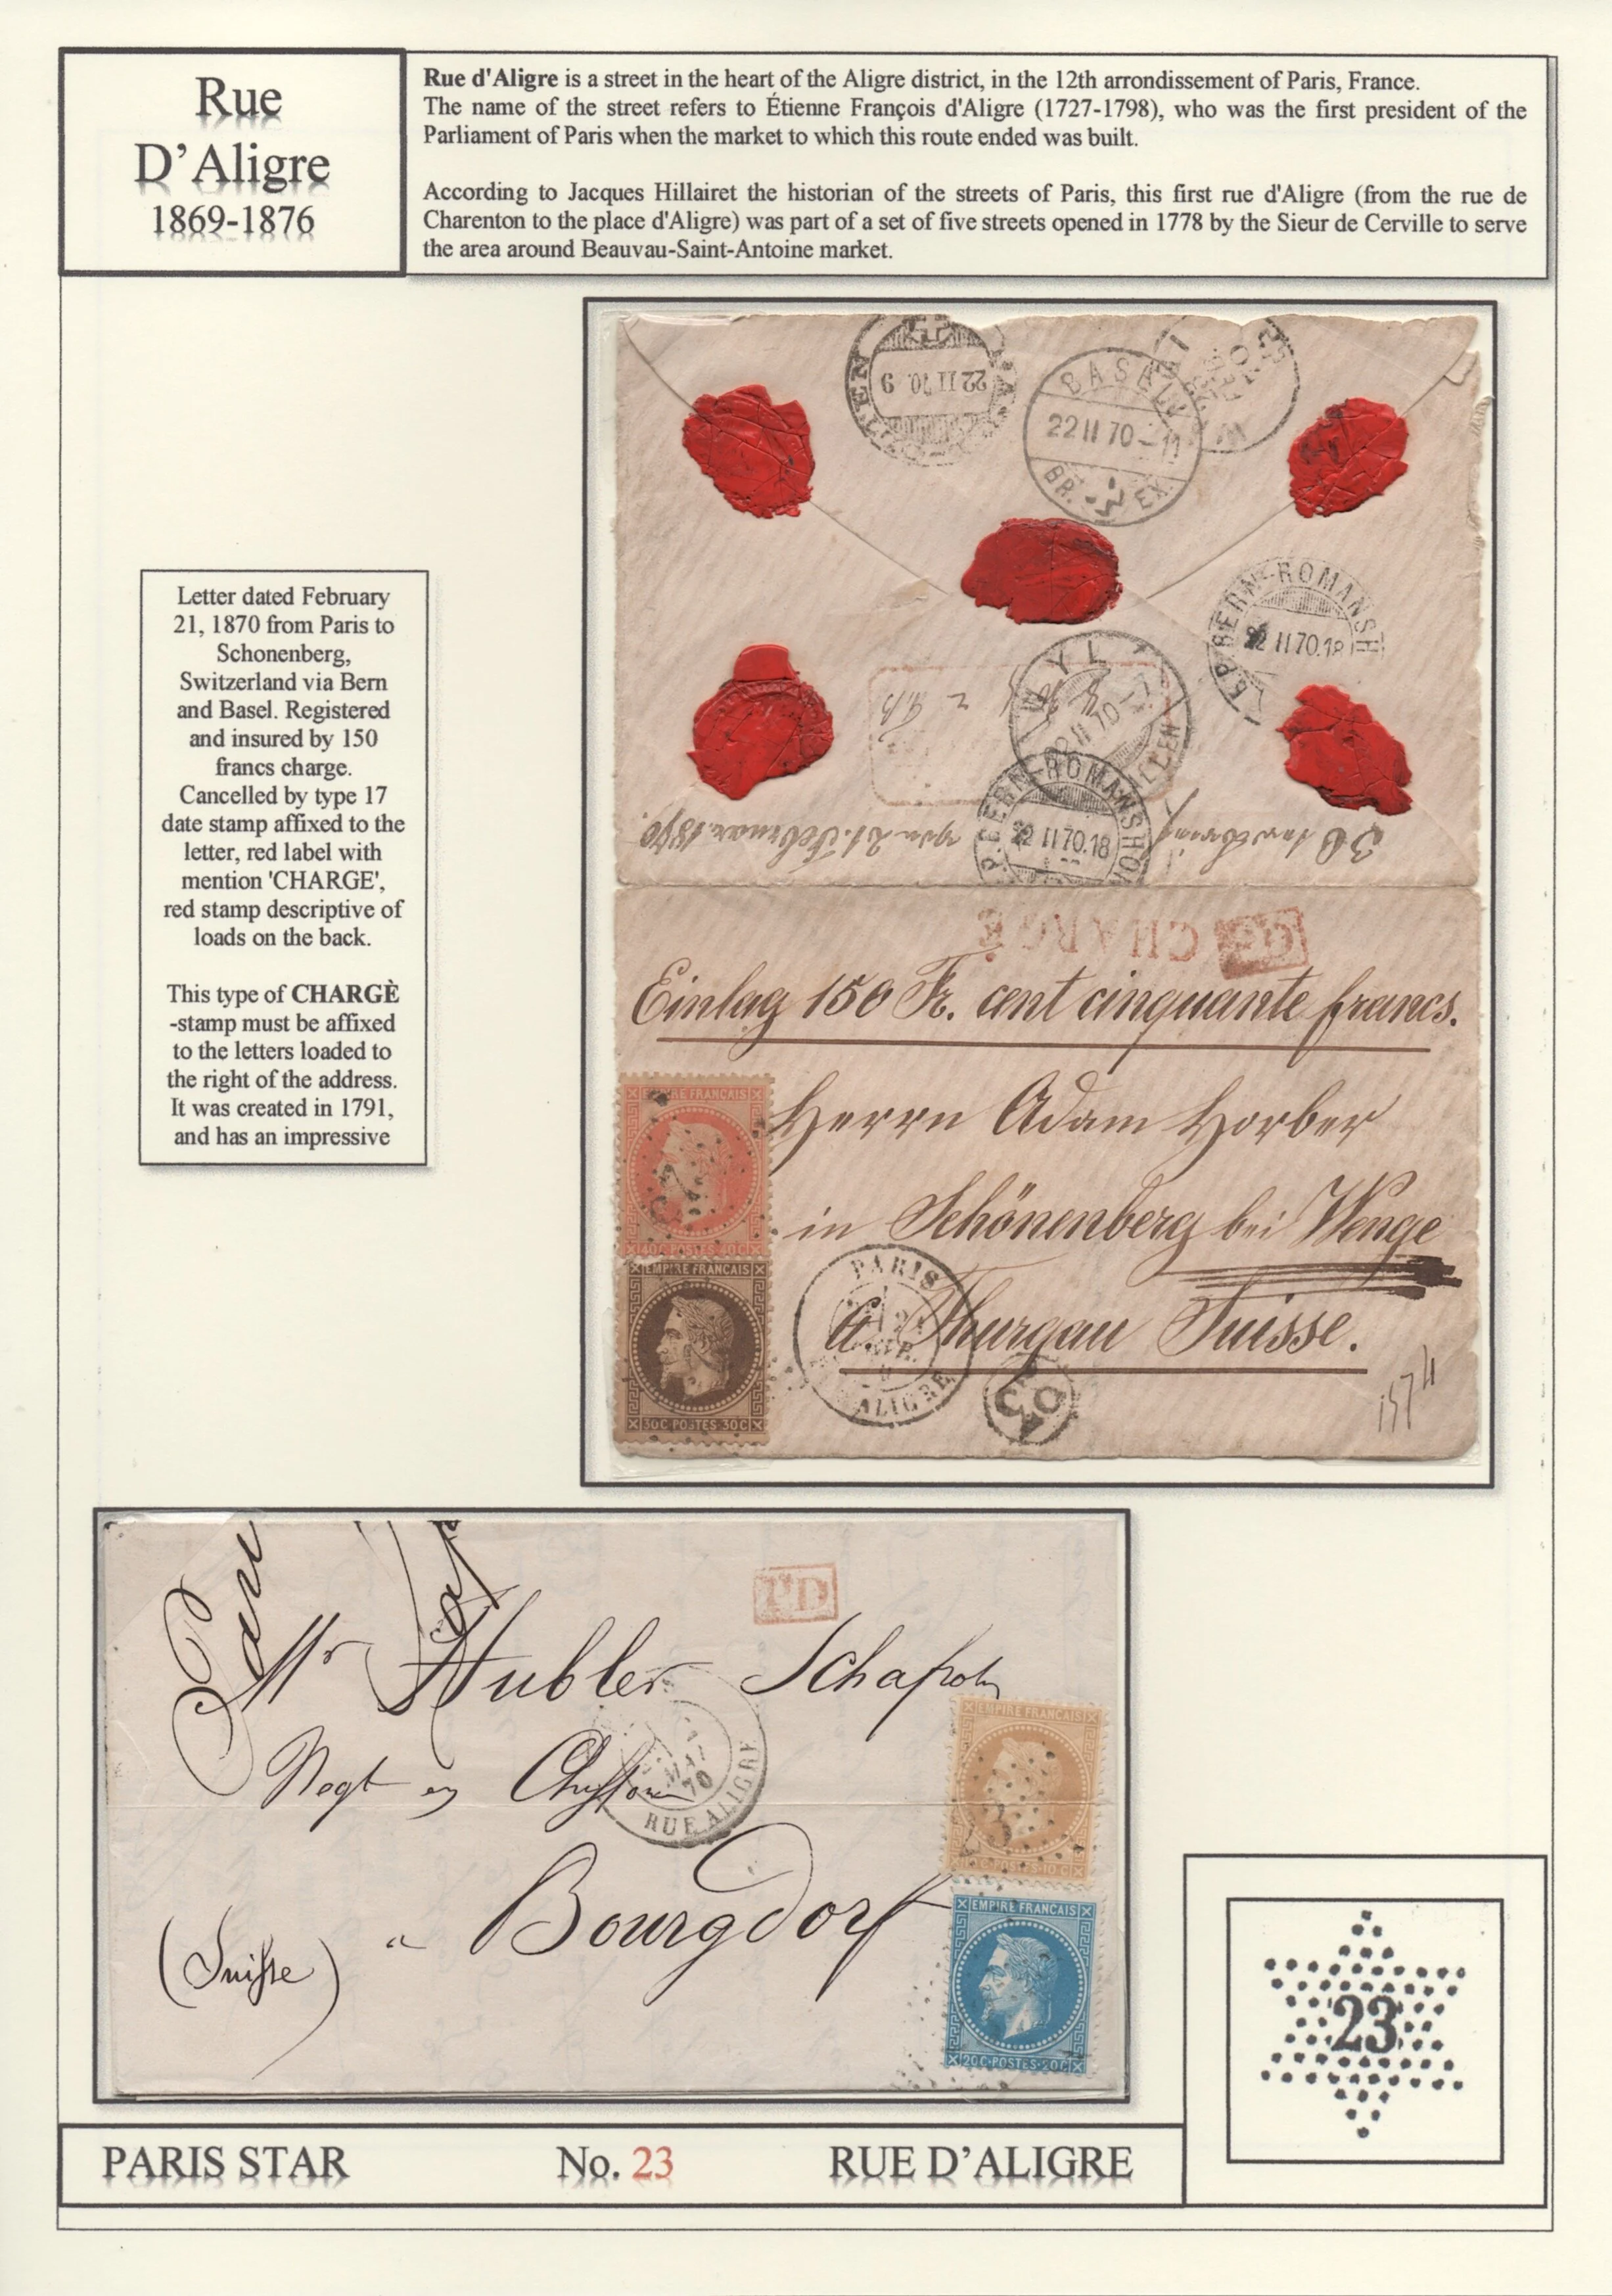 Rue
D'Aligre
1869-1876
Rue d'Aligre is a street in the heart of the Aligre district, in the 12th arrondissement of Paris, France.
The name of the street refers to Étienne François d'Aligre (1727-1798), who was the first president of the
Parliament of Paris when the market to which this route ended was built.
According to Jacques Hillairet the historian of the streets of Paris, this first rue d'Aligre (from the rue de
Charenton to the place d'Aligre) was part of a set of five streets opened in 1778 by the Sieur de Cerville to serve
the area around Beauvau-Saint-Antoine market.
22 II 70. 9
BASEL
22 II 70 - 11
BR. EX.
BERN-ROMANSH
22 II 70.18
WYL
22 II 70
BERN-ROMANSHOR
22 II 70.18
21. Februar 1870.
Letter dated February
21, 1870 from Paris to
Schonenberg,
Switzerland via Bern
and Basel. Registered
and insured by 150
francs charge.
Cancelled by type 17
date stamp affixed to the
letter, red label with
mention 'CHARGE',
red stamp descriptive of
loads on the back.
This type of CHARGÈ
-stamp must be affixed
to the letters loaded to
the right of the address.
It was created in 1791,
and has an impressive
CHARGÉ
Einlag 150 Fr. cent cinquante francs.
Herrn Adam Horber
in Schönenberg bei Wenge
Ct. Thurgau Suisse.
EMPIRE FRANCAIS
40C POSTES 40C
EMPIRE FRANCAIS
30C POSTES 30C
PARIS
ALIGRE
PD
Mr Hubler Schafroth
Negt en Chiffons
a Bourgdorf
(Suisse)
MAI
70
RUE ALIGRE
EMPIRE FRANCAIS
10 C POSTES 10 C
EMPIRE FRANCAIS
20C POSTES 20C
23
PARIS STAR No. 23 RUE D'ALIGRE